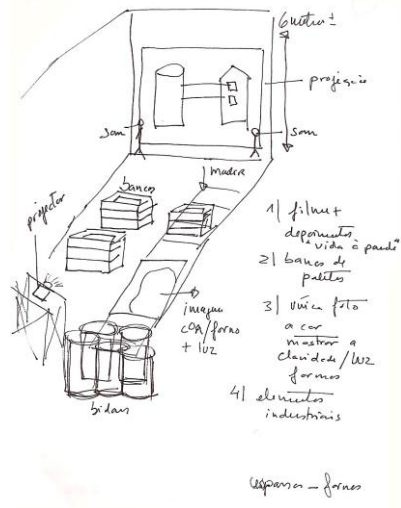 6 metros ±
projeção
som
som
madeira
bancos
projector
imagem
COA/forno
+ luz
bidons
1) filme +
depoimentos
"vida à parede"
2) bancos de
paletes
3) única foto
a cor
mostrar a
claridade/luz
fornos
4) elementos
industriais
fornos